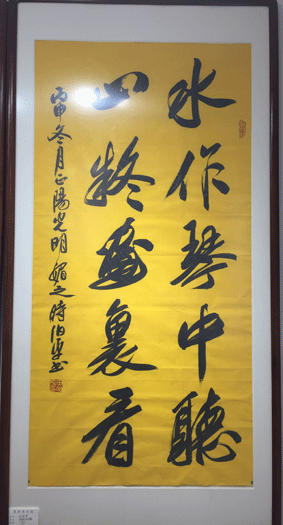 水作琴中聽
山將畫裏看
丙申冬月正陽光明媚之時伯卓書